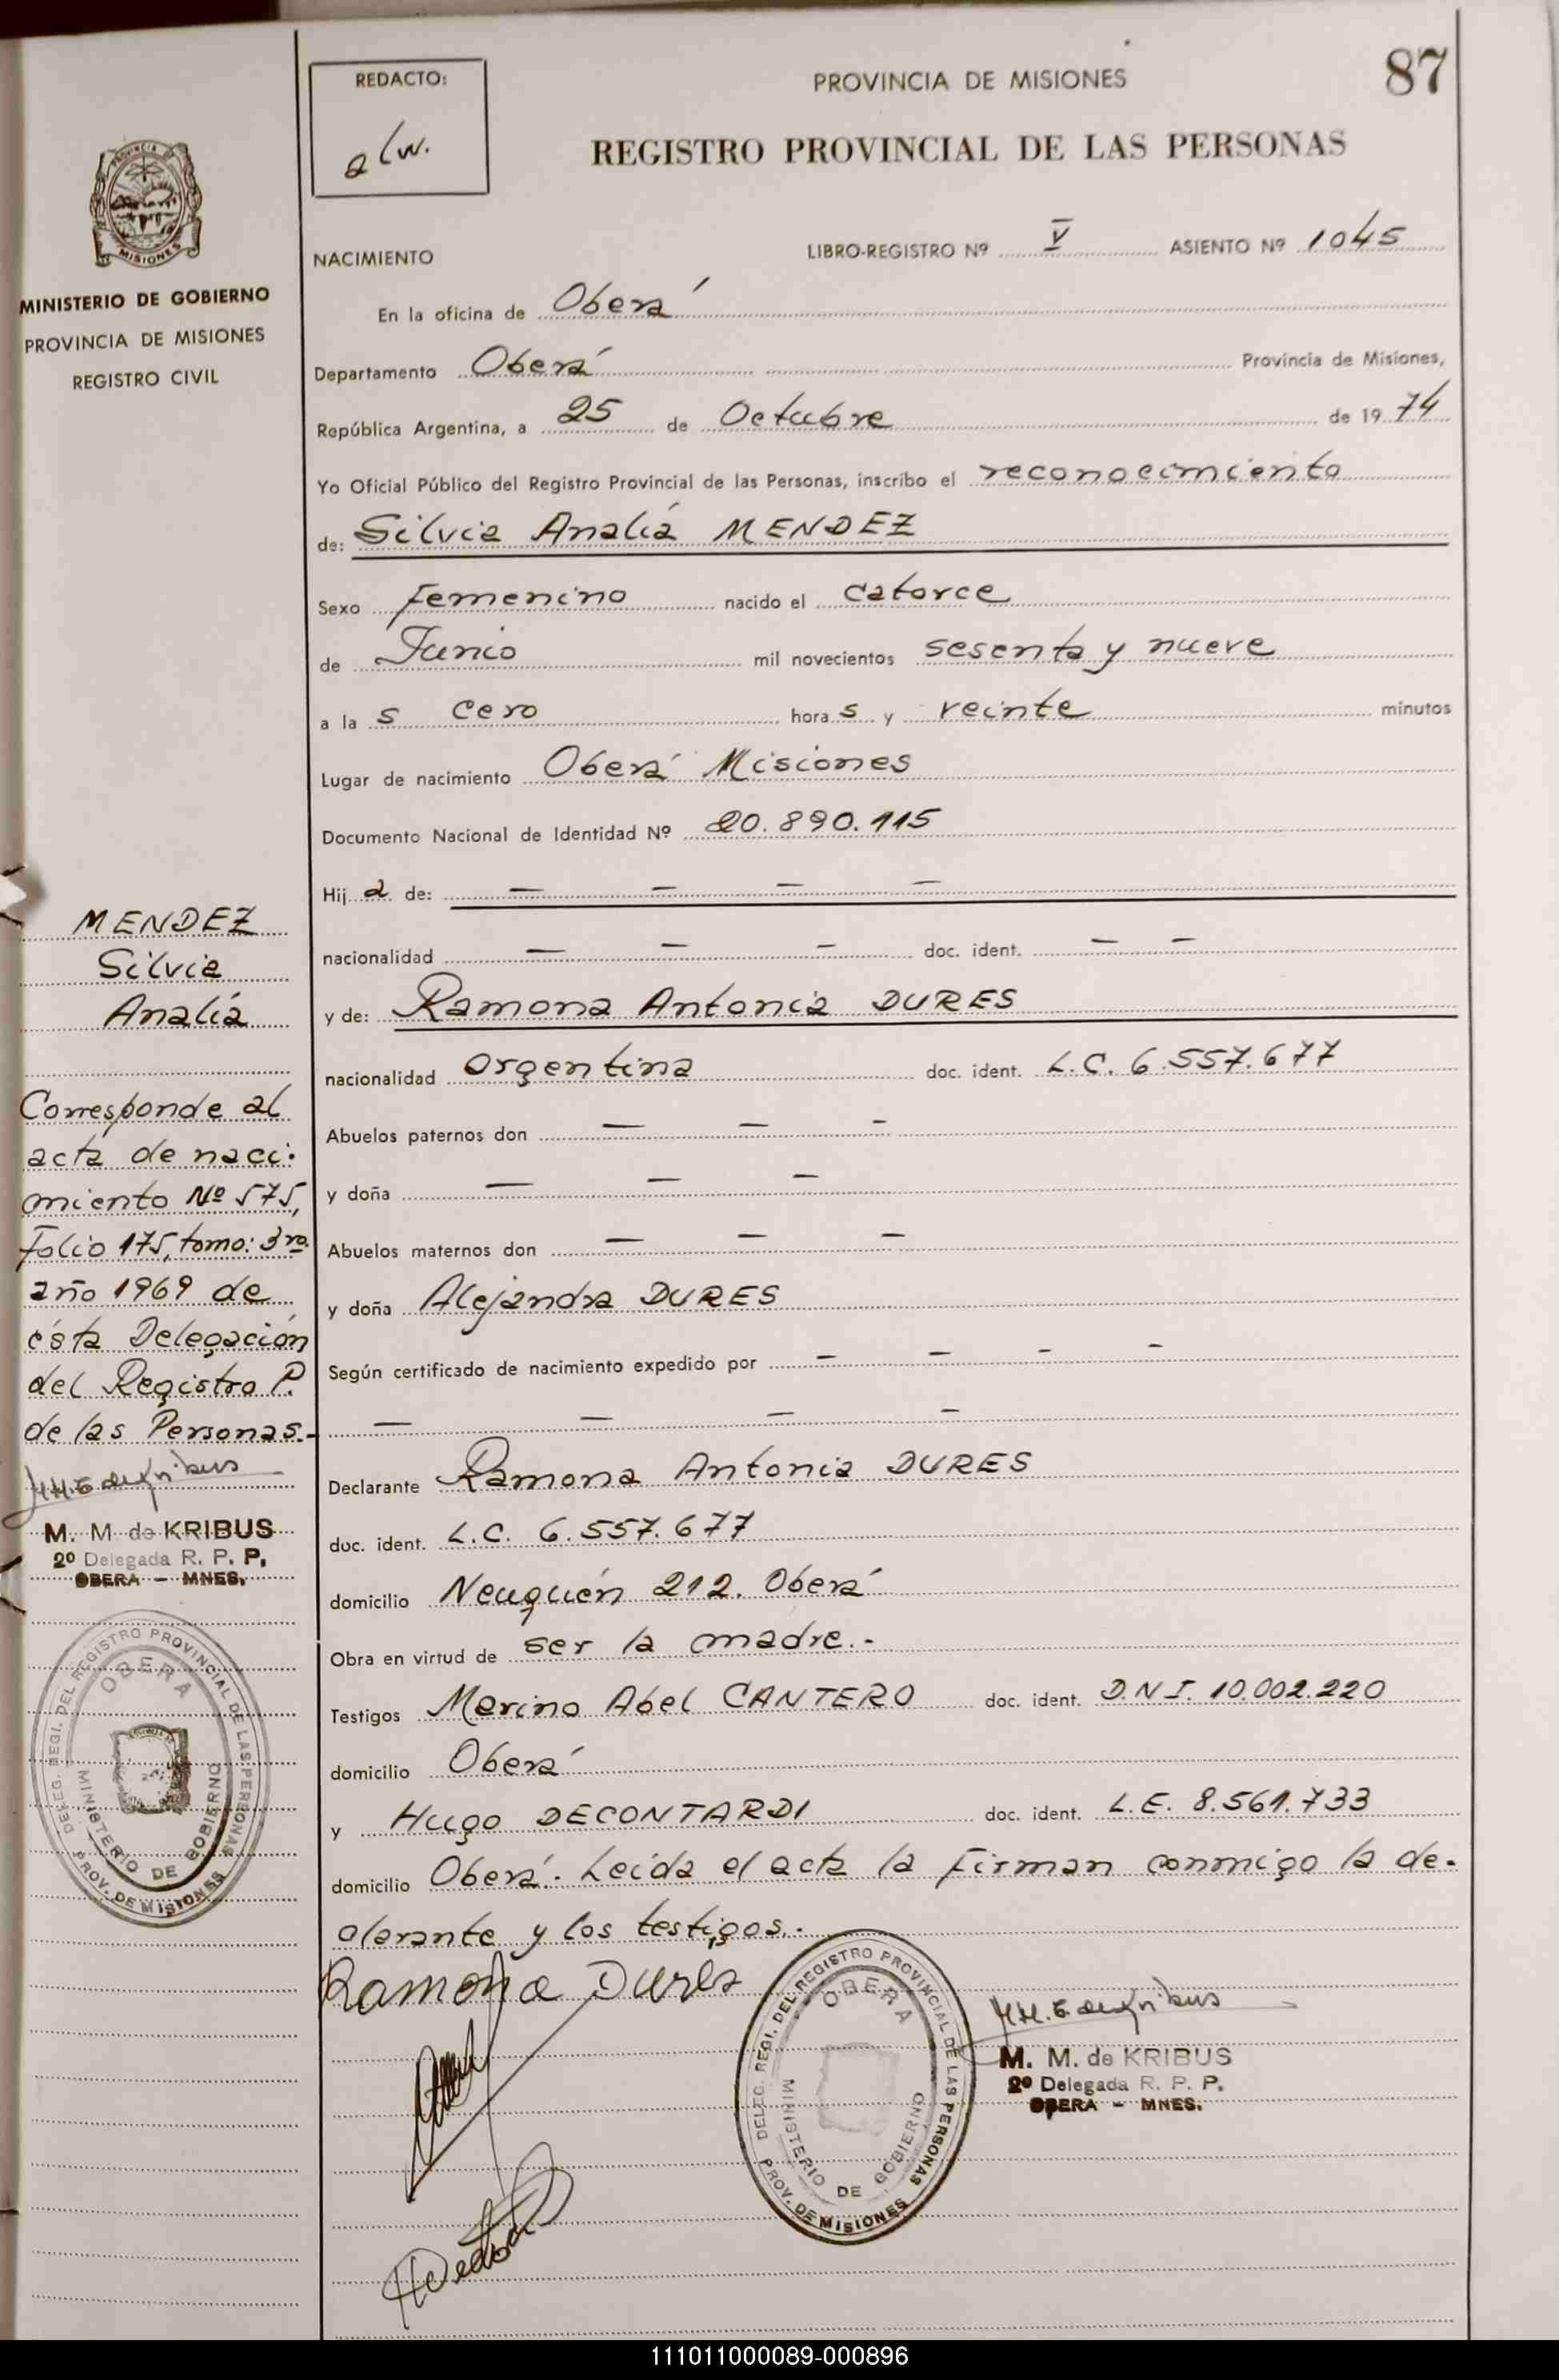 REDACTO:
PROVINCIA DE MISIONES
87
REGISTRO PROVINCIAL DE LAS PERSONAS
PROVINCIA DE
MISIONES
MINISTERIO DE GOBIERNO
PROVINCIA DE MISIONES
REGISTRO CIVIL
NACIMIENTO LIBRO-REGISTRO Nº V ASIENTO Nº 1045
En la oficina de Oberá
Departamento Oberá Provincia de Misiones,
República Argentina, a 25 de Octubre de 1974
Yo Oficial Público del Registro Provincial de las Personas, inscribo el reconocimiento
de: Silvia Analía MENDEZ
Sexo Femenino nacido el catorce
de Junio mil novecientos sesenta y nueve
a la s cero hora s y veinte minutos
Lugar de nacimiento Oberá Misiones
Documento Nacional de Identidad Nº 20.890.115
Hij a de: — — — —
nacionalidad — — — doc. ident. — —
y de: Ramona Antonia DURES
nacionalidad argentina doc. ident. L.C. 6.557.677
Abuelos paternos don — — —
y doña — — —
Abuelos maternos don — — —
y doña Alejandra DURES
Según certificado de nacimiento expedido por — — — —
— — — —
Declarante Ramona Antonia DURES
doc. ident. L.C. 6.557.677
domicilio Neuquén 212. Oberá
Obra en virtud de ser la madre.-
Testigos Merino Abel CANTERO doc. ident. D.N.I. 10.002.220
domicilio Oberá
y Hugo DECONTARDI doc. ident. L.E. 8.561.733
domicilio Oberá. Leida el acta la firman conmigo la de-
clarante y los testigos.-
Ramona Dures
DELEG. REGI. DEL REGISTRO PROVINCIAL DE LAS PERSONAS
OBERA
MINISTERIO DE GOBIERNO
PROV. DE MISIONES
M. M. de KRIBUS
2º Delegada R. P. P.
OBERA - MNES.
MENDEZ
Silvia
Analía
Corresponde al
acta de naci-
miento Nº 575,
Folio 175, tomo: 3ro.
año 1969 de
ésta Delegación
del Registro P.
de las Personas.-
M. M. de KRIBUS
2º Delegada R. P. P.
OBERA - MNES.
DELEG. REGI. DEL REGISTRO PROVINCIAL DE LAS PERSONAS
OBERA
MINISTERIO DE GOBIERNO
PROV. DE MISIONES
111011000089-000896